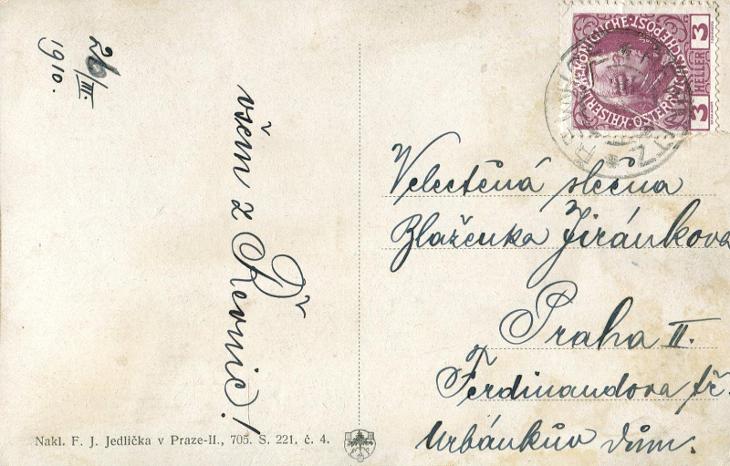 26/III.
1910.
všem z Řevnic!
Velectěná slečna
Blaženka Jiránkova
Praha II.
Ferdinandova tř.
Urbánkův dům.
Nakl. F. J. Jedlička v Praze-II., 705. S. 221. č. 4.
KAISERLICHE KÖNIGLICHE ÖSTERREICHISCHE POST
3 HELLER 3